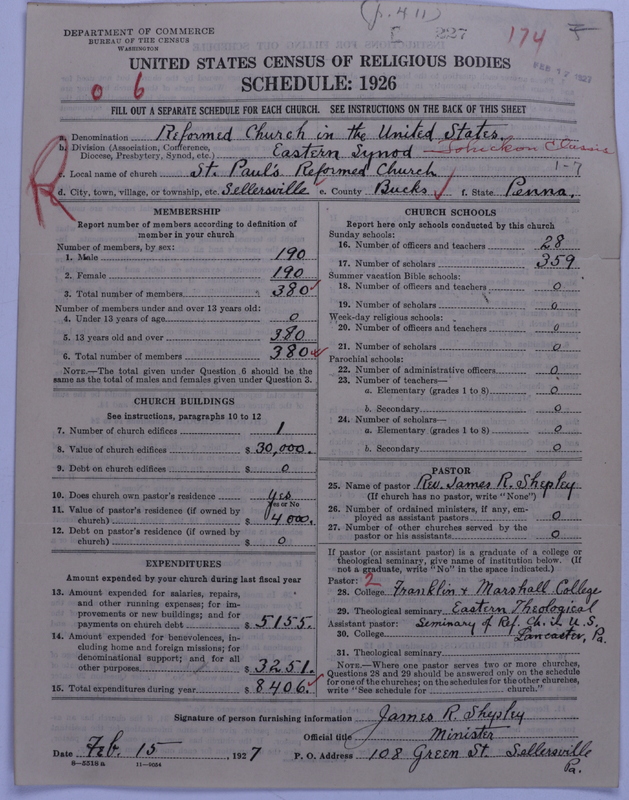 (p. 411)
227
174
DEPARTMENT OF COMMERCE
BUREAU OF THE CENSUS
WASHINGTON
FEB 17 1927
UNITED STATES CENSUS OF RELIGIOUS BODIES
SCHEDULE: 1926
0 6
FILL OUT A SEPARATE SCHEDULE FOR EACH CHURCH. SEE INSTRUCTIONS ON THE BACK OF THIS SHEET
a. Denomination Reformed Church in the United States.
b. Division (Association, Conference, Diocese, Presbytery, Synod, etc.) Eastern Synod - Tohickon Classis
c. Local name of church St. Paul's Reformed Church 1-7
d. City, town, village, or township, etc. Sellersville e. County Bucks f. State Penna.
MEMBERSHIP
Report number of members according to definition of
member in your church
Number of members, by sex:
1. Male 190
2. Female 190
3. Total number of members 380
Number of members under and over 13 years old:
4. Under 13 years of age 0
5. 13 years old and over 380
6. Total number of members 380
NOTE.—The total given under Question 6 should be the
same as the total of males and females given under Question 3.
CHURCH BUILDINGS
See instructions, paragraphs 10 to 12
7. Number of church edifices 1
8. Value of church edifices $ 30,000.
9. Debt on church edifices $ 0
10. Does church own pastor's residence yes
Yes or No
11. Value of pastor's residence (if owned by
church) $ 4000.
12. Debt on pastor's residence (if owned by
church) $ 0
EXPENDITURES
Amount expended by your church during last fiscal year
13. Amount expended for salaries, repairs,
and other running expenses; for im-
provements or new buildings; and for
payments on church debt $ 5155.
14. Amount expended for benevolences, in-
cluding home and foreign missions; for
denominational support; and for all
other purposes $ 3251.
15. Total expenditures during year $ 8406.
CHURCH SCHOOLS
Report here only schools conducted by this church
Sunday schools:
16. Number of officers and teachers 28
17. Number of scholars 359
Summer vacation Bible schools:
18. Number of officers and teachers 0
19. Number of scholars 0
Week-day religious schools:
20. Number of officers and teachers 0
21. Number of scholars 0
Parochial schools:
22. Number of administrative officers 0
23. Number of teachers—
a. Elementary (grades 1 to 8) 0
b. Secondary 0
24. Number of scholars—
a. Elementary (grades 1 to 8) 0
b. Secondary 0
PASTOR
25. Name of pastor Rev. James R. Shepley
(If church has no pastor, write "None")
26. Number of ordained ministers, if any, em-
ployed as assistant pastors 0
27. Number of other churches served by the
pastor or his assistants 0
If pastor (or assistant pastor) is a graduate of a college or
theological seminary, give name of institution below. (If
not a graduate, write "No" in the space indicated.)
Pastor: 2
28. College Franklin & Marshall College
29. Theological seminary Eastern Theological
Assistant pastor: Seminary of Ref. Ch. in U.S.
30. College Lancaster, Pa.
31. Theological seminary
NOTE.—Where one pastor serves two or more churches,
Questions 28 and 29 should be answered only on the schedule
for one of the churches; on the schedules for the other churches,
write "See schedule for church."
Signature of person furnishing information James R. Shepley
Official title Minister
Date Feb. 15, 1927 P. O. Address 108 Green St. Sellersville
Pa.
8—5518 a 11—9034